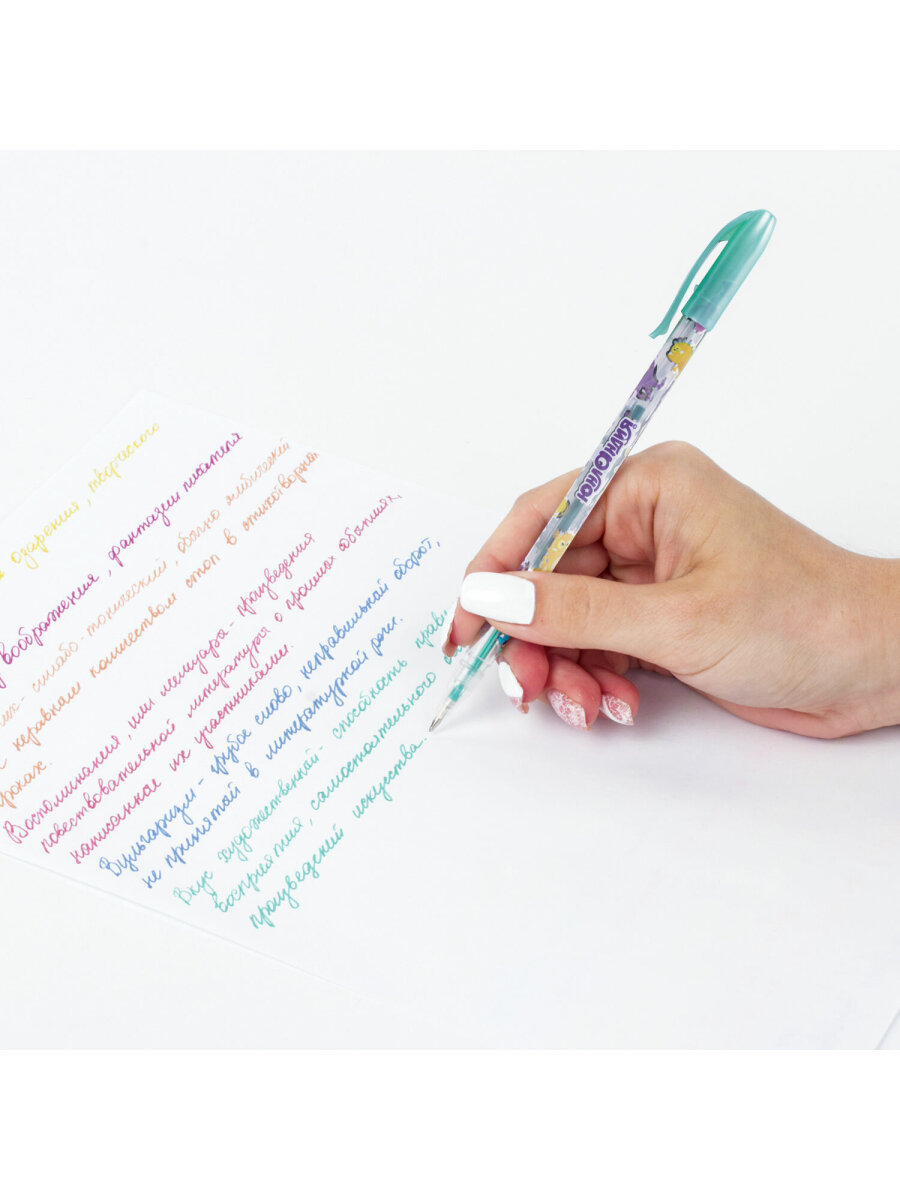 озарения, творческого
воображения, фантазии писателя
силлабо-тонический, обычно ямбический
с неравным количеством стоп в стихотворных
строках.
Воспоминания, или мемуары- произведения
повествовательной литературы о прошлых событиях,
написанное их участниками.
Вульгаризм- грубое слово, неправильный оборот,
не принятый в литературной речи.
Вкус художественный- способность прави
восприятия, самостоятельного
произведений искусства.
ЮНЛАНДИЯ